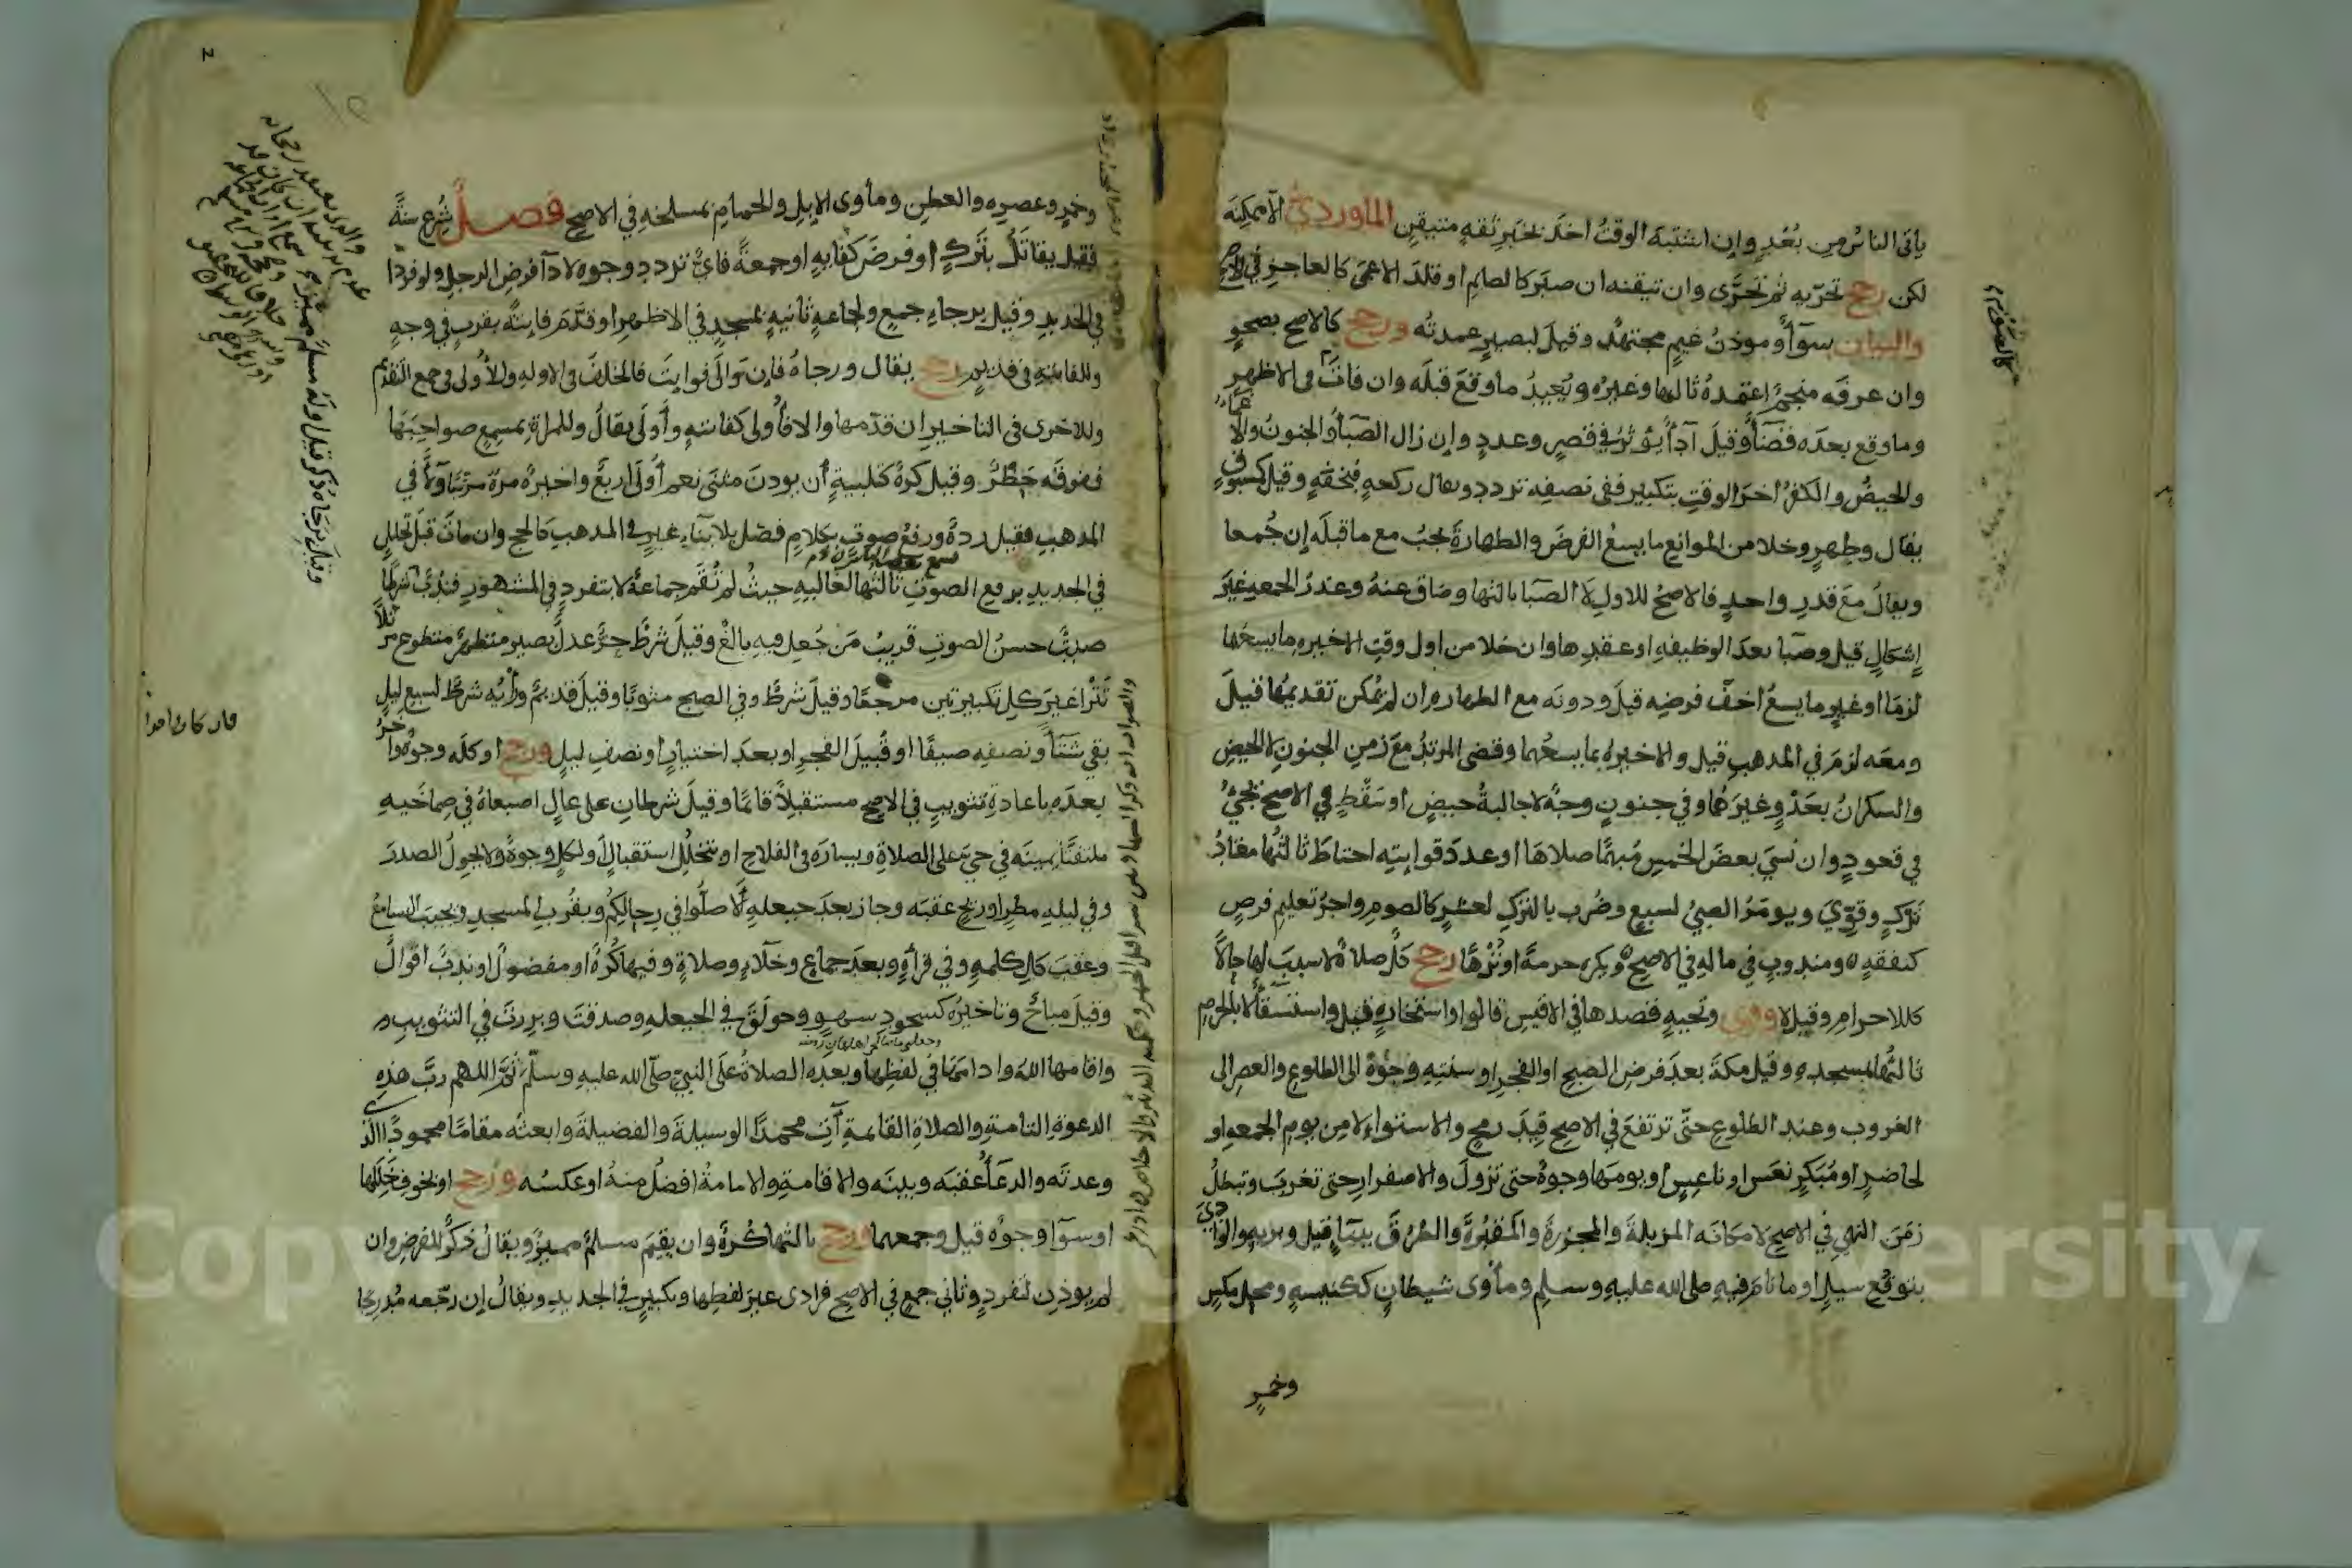 يأتي الناس من بُعْدٍ وإن اشتبه الوقتُ اخذ بخبر ثقةٍ متيقن الماوردي الا مكنه
لكن رجح تحرّيه ثم تحرَّى وان تيقنه ان صبر كالصايم او قلد الاعمى كالعاجز في الاصح
والبيان سوآء وموذنُ غيمٍ مجتهدٌ وقيل لبصيرٍ عمدتُه ورجح كالاصح بصحوٍ
وان عرفه منجم اعتمده ثالثها وغيره ويُعيدُ ما وقع قبله وان فات في الاظهر
وما وقع بعده فقضآءٌ وقيل آدآءٌ يؤثر في قصرٍ وعددٍ وإن زال الصبا والجنون والاغمآء
والحيضُ والكفرُ اخرَ الوقتِ بتكبيرٍ ففي نصفه تردد ويقال ركعه مخففه وقيل كسوف
يقال وطهرٍ وخلا من الموانع ما يسعُ الفرضَ والطهارةَ يجبُ مع ما قبله إن جُمعا
ويقالُ معَ قدرِ واحدٍ فالاصحُ للاولِ لا الصبا بالثها وضاق عنهُ وعذرُ الجمعهِ غيرَ
إشكالٍ قيل وصبا بعدَ الوظيفهِ او عقبها وان خلا من اول وقتِ الاخيره ما يسعها
لزما او غيرِ ما يسعُ اخفَّ فرضِه قيلَ ودونه مع الطهاره ان لم يمكن تقديمُها قيلَ
ومعه لزمَ في المذهبِ قيل والاخيره بما يسعُهما وقضى المرتدُ معَ زمنِ الجنون لا الحيضِ
والسكرانُ بعَدْوٍ وغيرَهُما وفي جنونٍ وجهٌ لا جالبةُ حيضٍ او سَقْطٍ في الاصح تجيُ
في قعودٍ وان نسي بعضَ الخمسِ مُبهمًا صلاها او عددَ فوايتِه احتاط ثالثُها معادُ
تركٍ وقوّيَ ويومرُ الصبيُ لسبعٍ وضُرب بالتركِ لعشرٍ كالصومِ واجرُ تعليمِ فرضٍ
كنفقهٍ ومندوبٍ في مالهِ في الاصح ويكره حرمةً او تنزهًا رجح كلُّ صلاةٍ لا سببَ لها حالًا
كالاحرامِ وقيل لا وقوي وتحيهٍ قصدها في الاقيس قالوا واستخارةٍ قيل واستسقآءٍ لا بالحرمِ
ثالثُها لمسجدِه وقيل مكةَ بعدَ فرضِ الصبحِ او الفجرِ او سنتِهِ وجوهٌ الى الطلوع والعصرِ الى
الغروب وعند الطلوعِ حتّى ترتفعَ في الاصح قِيدَ رمحٍ والاستواءِ لا من يومِ الجمعهِ او
لحاضرٍ او مُبَكرٍ نعَسَ او ناعسٍ او يومَها وجوهٌ حتى تزولَ والاصفرارِ حتى تغربَ وتبطلُ
زمَنَ النهيِ في الاصح لا مكانَه المزبلةَ والمجزرةَ والمقبُرةَ والطُرُقَ بينا قيل وبريه والوادي
بتوقُع سيلٍ او ما نام فيه صلى الله عليه وسلم ومأوى شيطانٍ ككنيسهٍ ومحلِ مكسٍ
وخمرٍ
وخمرٍ وعصيره والعطنِ ومأوى الابلِ والحمامِ بمسلخهِ في الاصح فصلٌ شُرع سنةً
فقيل يقاتَلُ بتركٍ او فرضَ كفايهٍ او جمعةً فايُّ تردد وجوه لادآء فرضِ الرجلِ ولو فردا
في الجديدِ وقيل برجاءِ جمعٍ ولجماعهٍ ثانيهٍ بمسجدٍ في الاظهر او قدَّم فايتهً بقربٍ في وجهٍ
وللفايتهِ في قديم رجح يقال ورجاهُ فإن توالى فوايتَ فالخلفُ في الاوله والاُولى في جمع التقديم
وللاخرى في التاخيرِ ان قدّمها والا فاُولى كفايتهٍ واُولَى يقالُ وللمراةِ بمسمعِ صواحبَها
ففوقَه حظرٌ وقيل كرهٌ كتلبيةٍ أن يوذنَ مثنى نعم اُولَى اربعٌ واخيرهُ مرة مرتبًا وِلآءً في
المذهبِ فقيل ردةٌ ورفعُ صوتٍ بكلامٍ فصل بلا بنآءِ غيرٍ في المذهبِ كالحج وان ماتَ قبلَ تحللٍ
في الجديدِ برفعِ الصوتِ ثالثُها لغالبيهِ حيثُ لم تُقَم جماعةٌ لا بتفردٍ في المشهور فنُدبَ شرطًا
صيّتٌ حسنُ الصوتِ قريبُ مَن جُعل فيهِ بالغٌ وقيلَ شرطٌ حرٌّ عدلٌ بصيرٌ متطهرٌ متطوعٌ مرتلًا
تَتْرا غيرَ كلِ تكبيرتين مرجعًا وقيلَ شرطٌ وفي الصبحِ مثوبًا وقيلَ قديمٌ ورأيُه شرطٌ لسبعِ ليلٍ
بقي شتآءً ونصفِه صيفًا او قُبيلَ الفجرِ او بعدَ اختيارٍ او نصفِ ليلٍ ورجح او كله وجوهٌ واخرُ
بعدَه باعادةِ تثويبٍ في الاصح مستقبلًا قائمًا وقيلَ شرطانِ على عالٍ اصبعاهُ في صماخَيهِ
ملتفتًا يمينَه في حيَ على الصلاةِ ويسارَه في الفلاحِ او يتخللُ استقبالٌ ولكلٍ وجوهٌ ولا يحولُ الصدرَ
وفي ليلهِ مطرٍ او ريحٍ عقبَه وجاز بعدَ حيعلهٍ ألَا صلُّوا في رِحالِكُم وبقُربِ المسجدِ ويجيبَ السامعُ
وعقبَ كلِ كلمهٍ وفي قرآءهٍ وبعدَ جماعٍ وخلآءٍ وصلاةٍ وفيها كُرْهٌ او مفضولٌ او ندبٌ اقوالٌ
وقيلَ مباحٌ وتاخيرُه كسجودِ سهوٍ وحولَقَ في الحيعلهِ وصدقتَ وبرِرتَ في التثويبِ و
واقامها اللهُ وادامَها في لفظِها وبعده الصلاةُ على النبيّ صلّى الله عليهِ وسلّم ثُمَّ اللهم ربَّ هذهِ
الدعوةِ التامةِ والصلاةِ القايمةِ آتِ محمدًا الوسيلةَ والفضيلةَ وابعثه مقامًا محمودًا الذي
وعدتَه والدعآءُ عقبَه وبينَه والاقامةِ والامامةُ افضلُ منهُ او عكسُه ورجح او بخوفِ خللِها
او سوآءٌ وجوهٌ قيل وجمعهما ورجح بالثها كُرهٌ وان يقيمَ مسلمٌ مميزٌ ويقالُ ذكرٌ للفرضِ وان
لم يوذن لتفردٍ وثاني جمعٍ في الاصح فرادى غيرَ لفظِها وتكبيرٍ في الجديد ويقالُ إن رجّعه مُدرجًا
وقيل برجاهُ ذكر قيل اوله مسلم مميز